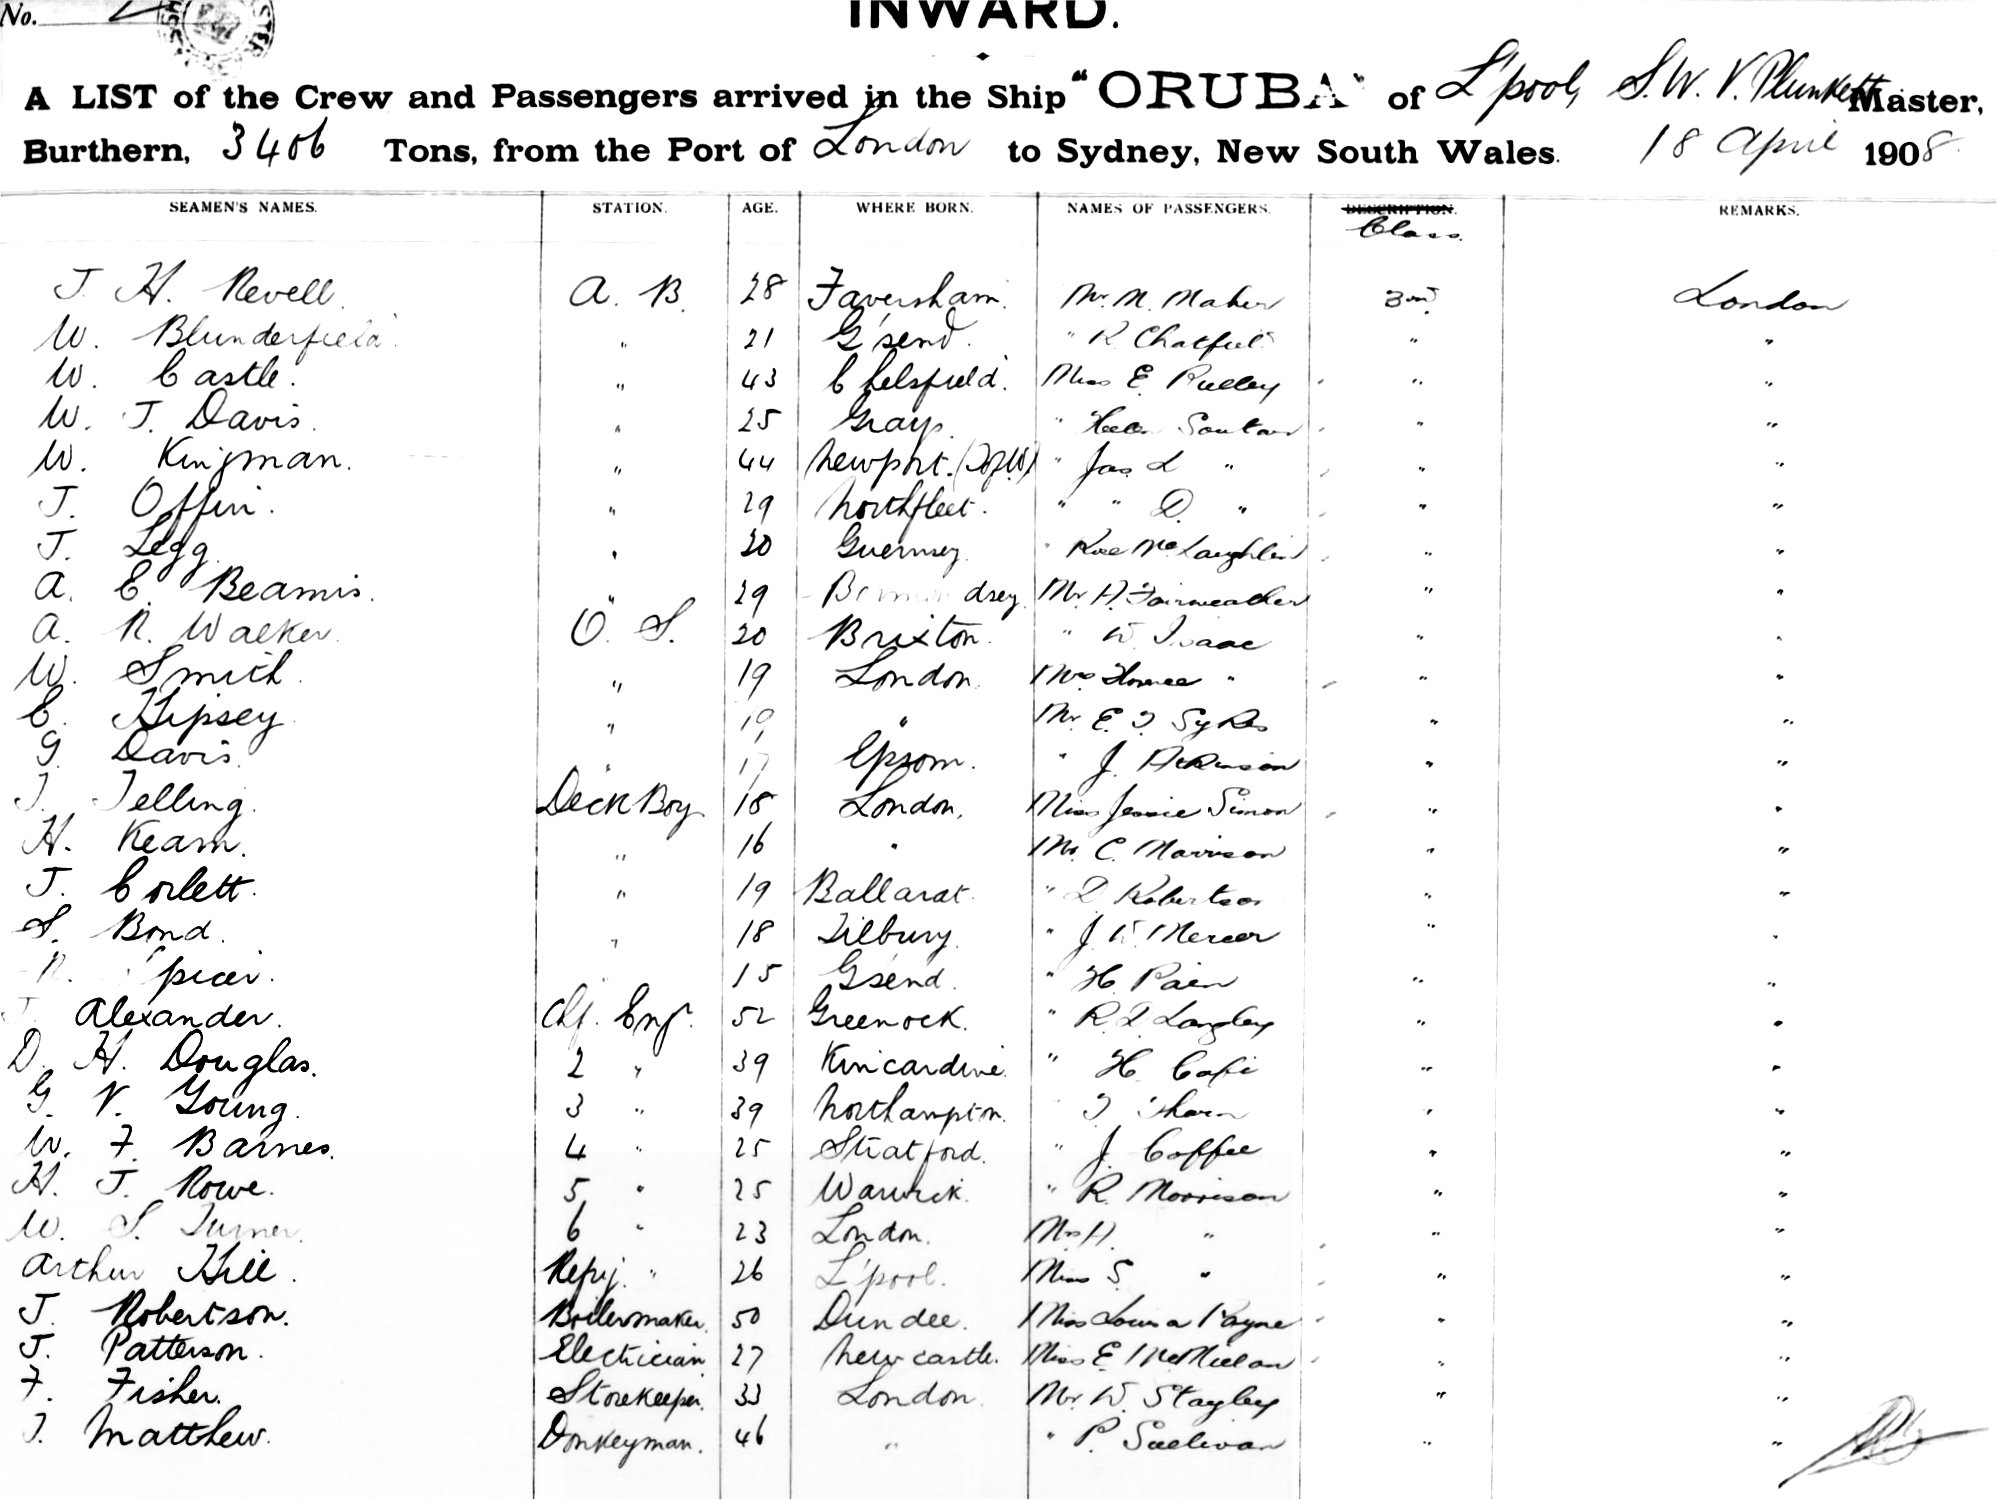 No.
INWARD.
A LIST of the Crew and Passengers arrived in the Ship "ORUBA" of L'pool, S. W. V. Plunkett Master,
Burthern, 3406 Tons, from the Port of London to Sydney, New South Wales. 18 April 1908.
SEAMEN'S NAMES. STATION. AGE. WHERE BORN. NAMES OF PASSENGERS. DESCRIPTION. REMARKS.
Class.
J. H. Revell. A. B. 28 Faversham. Mr. M. Maher 3rd. London
W. Blunderfield. " 21 G'send. " R " "
W. Castle. " 43 Chelsfield. Miss E. Pulley " "
W. J. Davis. " 25 Grays. " Helen Soutar " "
W. Kingman. " 44 Newport. " Jas. L " " "
J. Offin. " 29 Northfleet. " " D. " " "
J. Legg. " 20 Guernsey. " McLaughlin " "
A. E. Beamis. " 29 Bermondsey. Mr. A. Fairweather " "
A. R. Walker. O. S. 20 Brixton. " W. Isaac " "
W. Smith. " 19 London. Mrs " " "
E. Hipsey. " 19 " Mr. E. J. Sykes " "
G. Davis. " 17 Epsom. " J. " "
J. Telling. Deck Boy 18 London. Miss Jessie Simon " "
H. Keam. " 16 " Mr. C. Morrison " "
J. Corlett. " 19 Ballarat. " D Robertson " "
S. Bond. " 18 Tilbury. " J. W. Mercer " "
R. Spicer. 15 G'send. " H. Pain " "
J. Alexander. Chf. Engr. 52 Greenock. " R. D. Langley " "
D. H. Douglas. 2 " 39 Kincardine. " H. " "
G. V. Young. 3 " 39 Northampton. " J. Thorn " "
W. F. Barnes. 4 " 25 Stratford. " J. Coffee " "
H. J. Rowe. 5 " 25 Warwick. " R. Morrison " "
W. S. Turner. 6 " 23 London. Mrs H. " " "
Arthur Hill. Refrig. " 26 L'pool. Miss S " " "
J. Robertson. Boilermaker. 50 Dundee. Miss Louisa Payne " "
J. Patterson. Electrician 27 Newcastle. Miss E. McMillan " "
F. Fisher. Storekeeper. 33 London. Mr. W. Stayley " "
J. Matthew. Donkeyman. 46 " " P. Sullivan " "